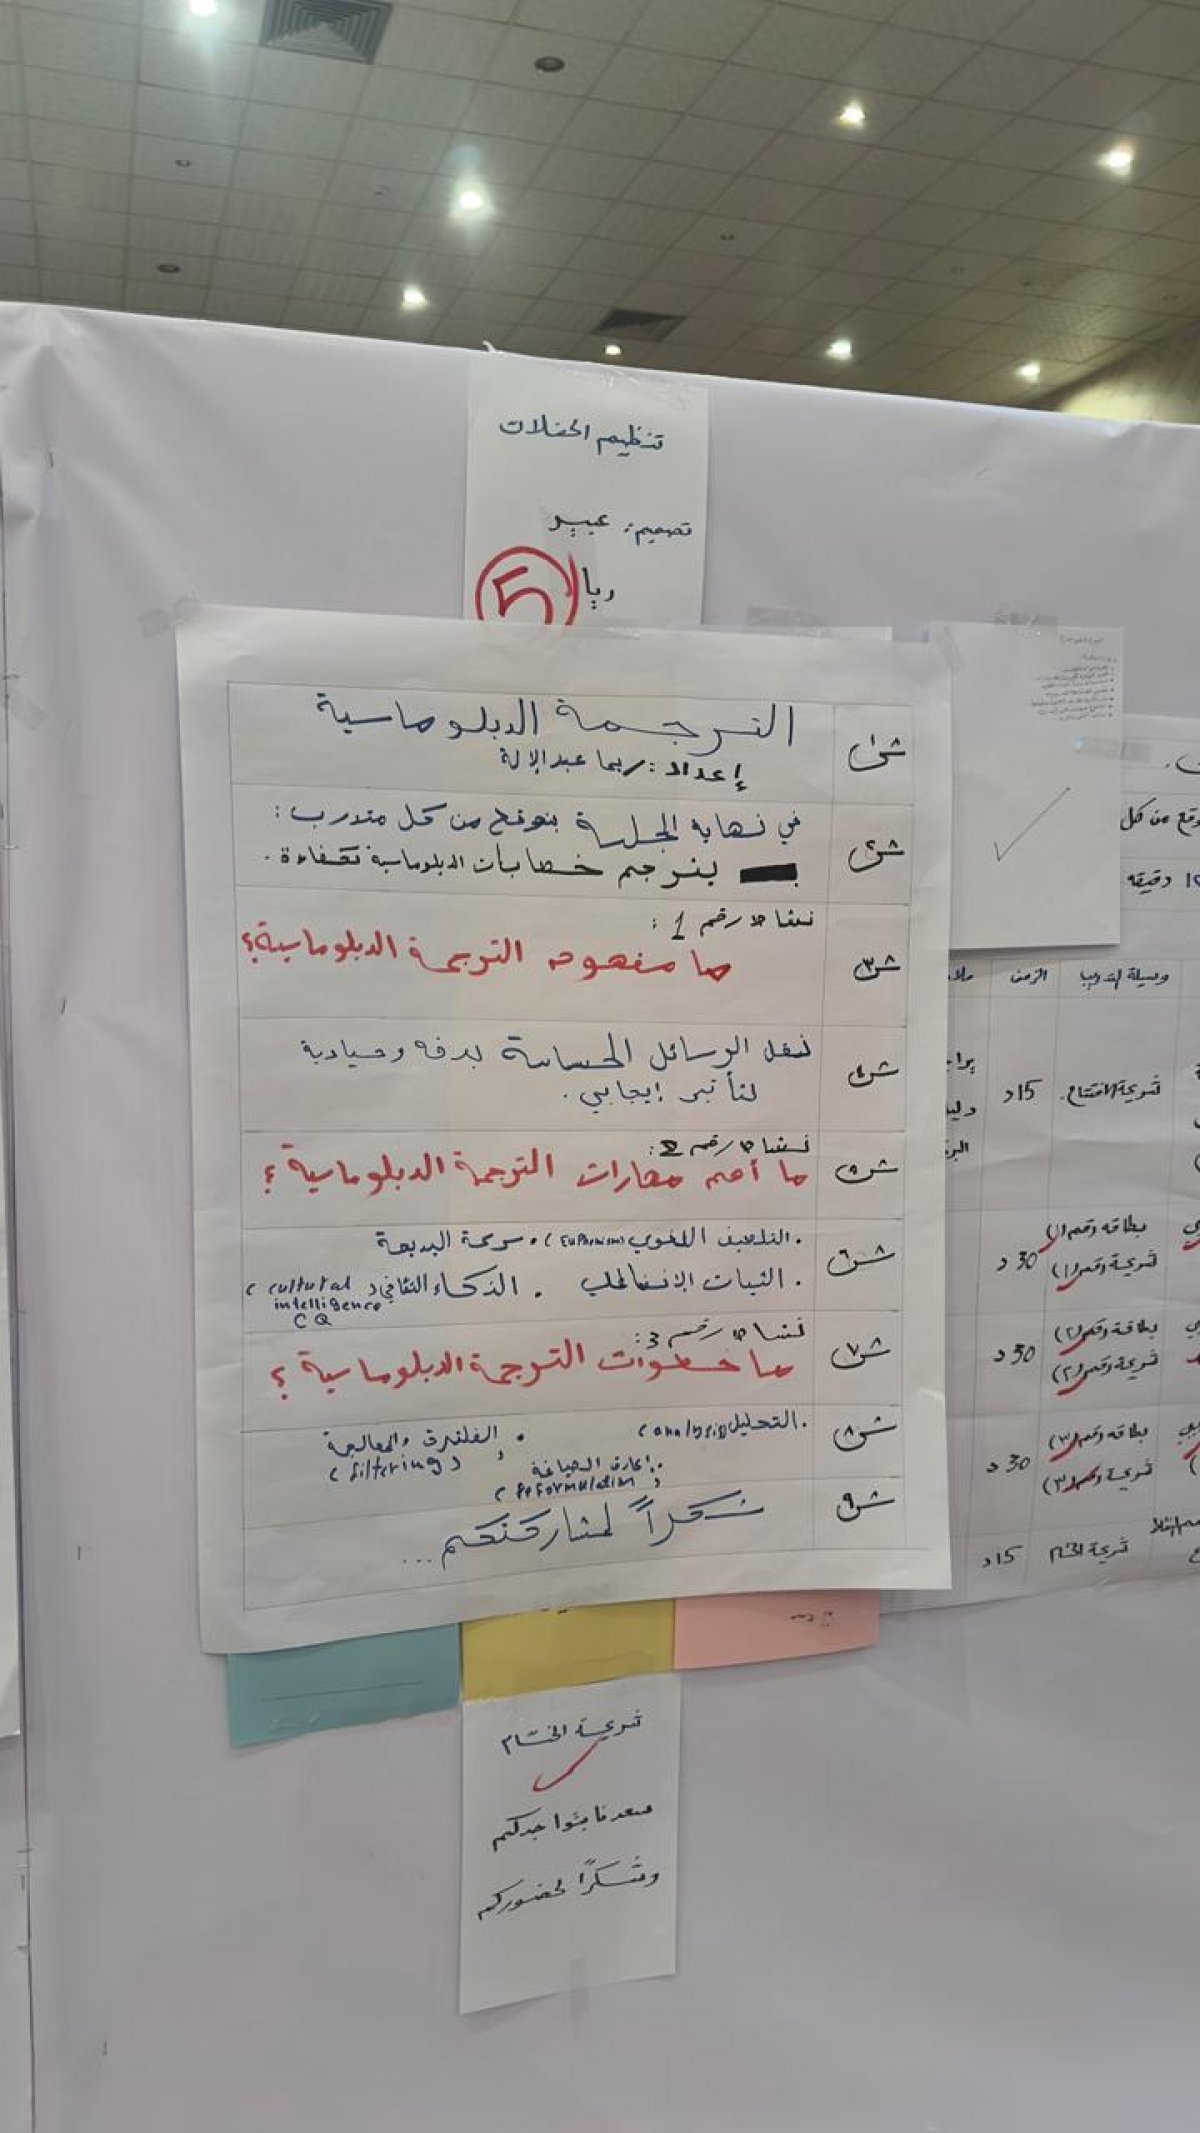 تنظيم الحفلات
تصميم: عبير
ربا
5
ش١
الترجمة الدبلوماسية
إعداد: ريما عبدالإلة
ش٢
في نهاية الجلسة يتوقع من كل متدرب:
يترجم خطابات الدبلوماسية بكفاءة.
ش٣
نشاط رقم 1:
ما مفهوم الترجمة الدبلوماسية؟
ش٤
نقل الرسائل الحساسة بدقه وحيادية
لتأثير إيجابي.
ش٥
نشاط رقم 2:
ما أهم مهارات الترجمة الدبلوماسية؟
ش٦
. التلطيف اللغوي (Euphemism) . سرعة البديهة
. الثبات الانفعالي . الذكاء الثقافي (cultural
intelligence
CQ
ش٧
نشاط رقم 3:
ما خطوات الترجمة الدبلوماسية؟
ش٨
. التحليل (analysis) . الفلترة والمعالجة
(filtering)
. إعادة الصياغة
(Reformulation)
ش٩
شكراً لمشاركتكم...
شريحة الختام
سعدنا بتواجدكم
وشكرًا لحضوركم
وقع من كل
١٢ دقيقه
الزمن
شريحة الافتتاح.
15 د
بطاقه رقم (١)
شريحة رقم (١)
30 د
بطاقة رقم (٢)
شريحة رقم (٢)
30 د
بطاقه رقم (٣)
شريحة رقم (٣)
30 د
شريحة الختام
15 د